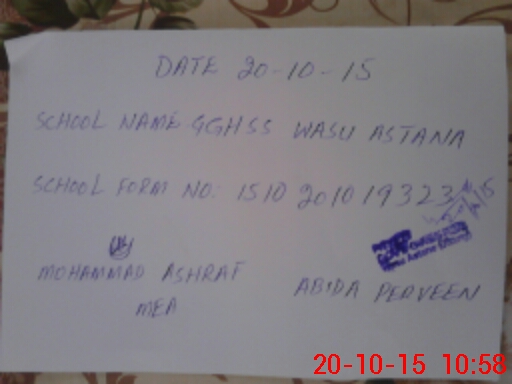 DATE 20-10-15
SCHOOL NAME GGHSS WASU ASTANA
SCHOOL FORM NO: 1510 2010 19323
MOHAMMAD ASHRAF
MEA
ABIDA PERVEEN
20-10-15 10:58